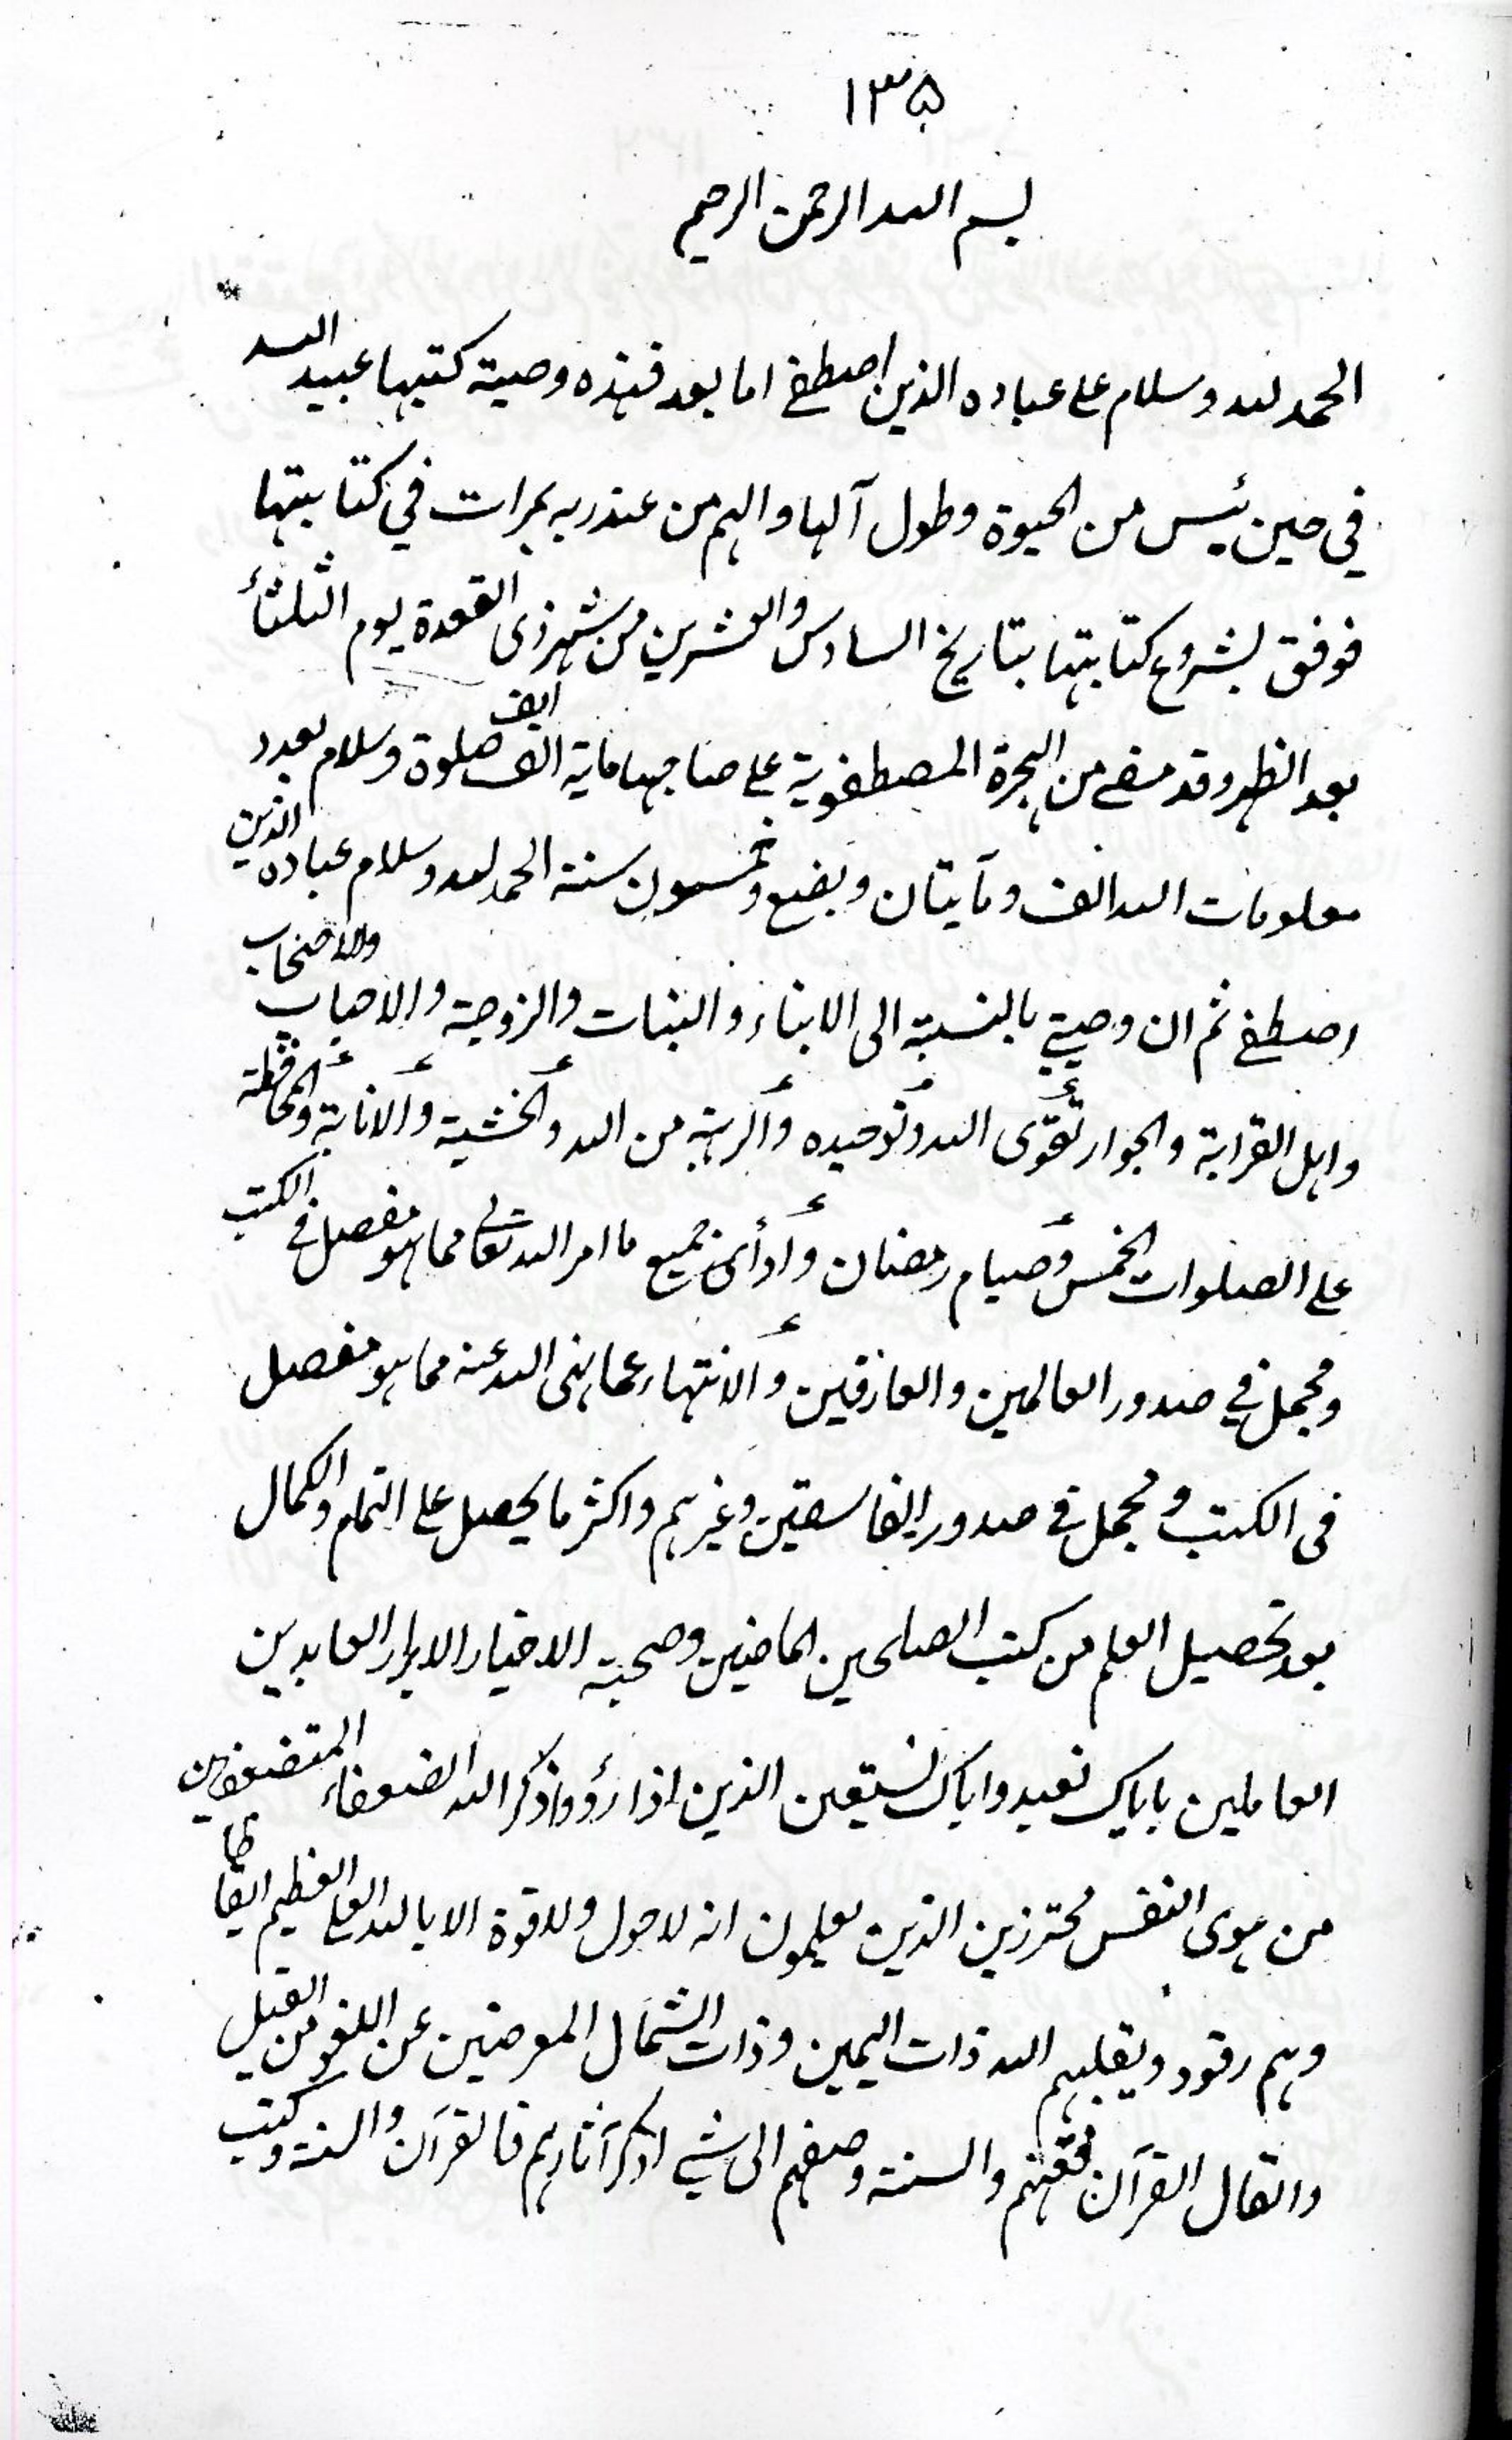 ١٣٥
بسم الله الرحمن الرحيم
الحمد لله وسلام على عباده الذين اصطفى اما بعد فهذه وصية كتبها عبيد الله
في حين يئس من الحيوة وطول آلها والهم من عند ربه بمرات في كتابتها
فوفق بشروع كتابتها بتاريخ السادس والعشرين من شهر ذى القعدة يوم الثلثأ
بعد الظهر وقد مضى من الهجرة المصطفوية على صاحبها ماية الف الف صلوة وسلام بعدد
معلومات الله الف ومآيتان وبضع وخمسون سنة الحمد لله وسلام عباده الذين
اصطفى ثم ان وصيتي بالنسبة الى الابناء والبنات والزوجة والاحباب والاصحاب
واهل القرابة والجوار تقوى الله وتوحيده والرهبة من الله والخشية والانابة والمحافظة
على الصلوات الخمس وصيام رمضان وادأى جميع ما امر الله تعالى مما هو مفصل في الكتب
ومجمل في صدور العالمين والعارفين والانتهاء عما نهى الله عنه مما هو مفصل
فى الكتب ومجمل في صدور الفاسقين وغيرهم واكثر ما يحصل على التمام والكمال
بعد تحصيل العلم من كتب الصلحين الماضين وصحبة الاخيار الابرار العابدين
العاملين باياك نعبد واياك نستعين الذين اذا رؤوا ذكر الله الضعفاء المتضعفين
من هوى النفس محترزين الذين يعلمون انه لا حول ولا قوة الا بالله العلي العظيم ايقاظا
وهم رقود ويقلبهم الله ذات اليمين وذات الشمال المعرضين عن اللغو من القيل
والقال القرآن والسنة وصفهم الى شي اذكر آثارهم فالقرآن والسنة وكتب